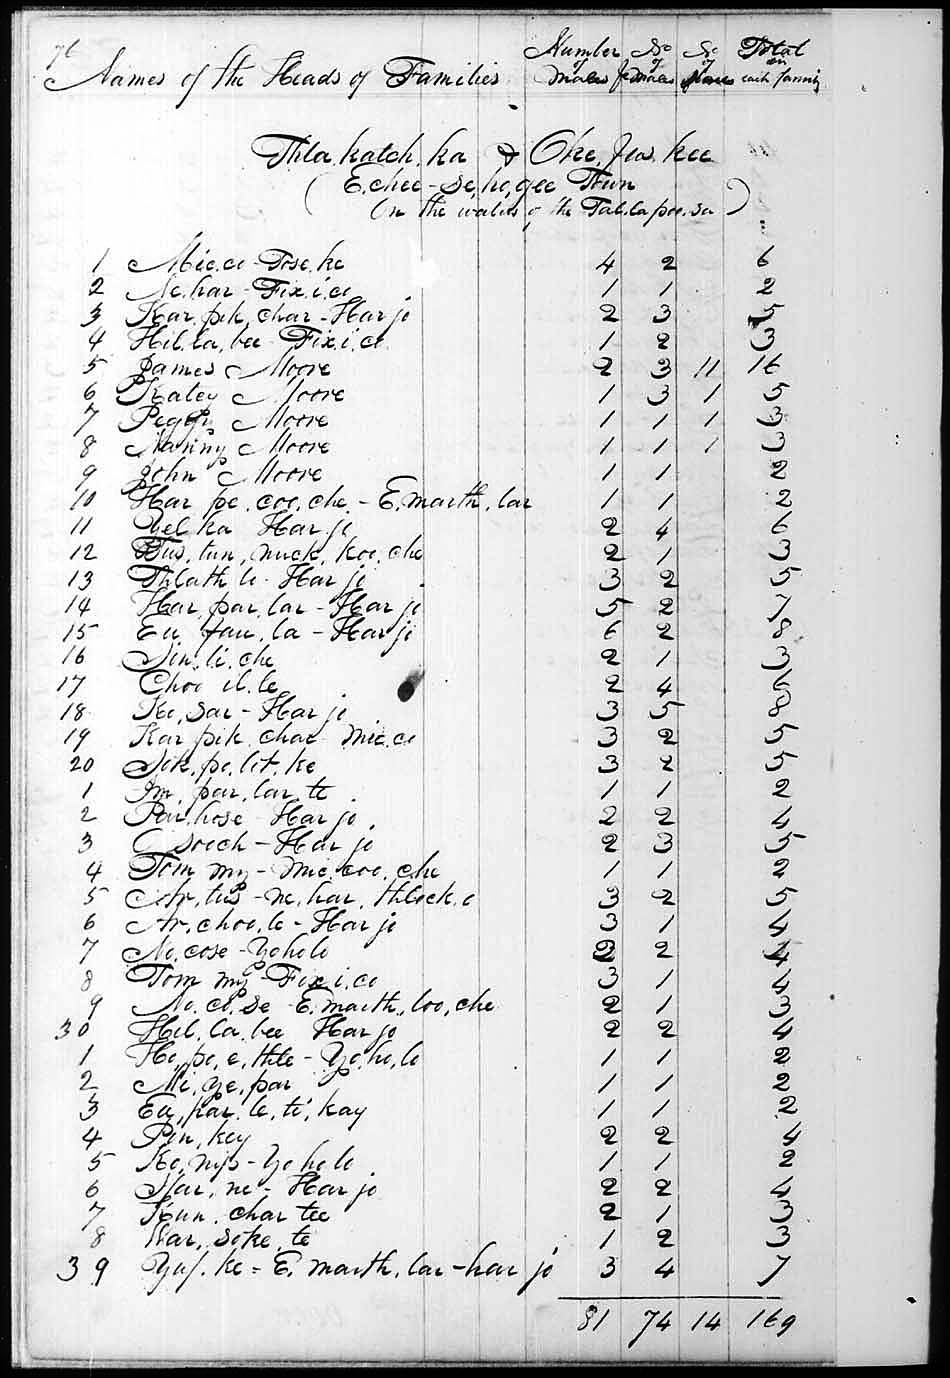 76
Number No No Total
of of of in
Names of the Heads of Families Males females Slaves each family
Thla, katch, ka & Oke, fus, kee
( E, chee - se, ho, gee Town
On the waters of the Tal, la poo, sa )
1 Mic, co - Tose, ke 4 2 6
2 Ne, har - Fix, i, co 1 1 2
3 Kar, pik, char - Har jo 2 3 5
4 Hil, la, bee - Fix, i, co 1 2 3
5 James Moore 2 3 11 16
6 Katey Moore 1 3 1 5
7 Peggy Moore 1 1 1 3
8 Nanny Moore 1 1 1 3
9 John Moore 1 1 2
10 Har pe, coo, che - E, marth, lar 1 1 2
11 Yel ka Har jo 2 4 6
12 Tus, tun, nuck, koo, che 2 1 3
13 Thlath lo - Har jo 3 2 5
14 Har, par, lar - Har jo 5 2 7
15 Eu fau, la - Har jo 6 2 8
16 Sin, li, che 2 1 3
17 Choo il, le 2 4 6
18 Ko, sar - Har jo 3 5 8
19 Kar pik, char Mic, co 3 2 5
20 Sok, po, lit, ke 3 2 5
1 Im, par, lar, te 1 1 2
2 Par, hose - Har jo 2 2 4
3 O soech - Har jo 2 3 5
4 Tom my - Mic, coo, che 1 1 2
5 Ar, tus - ne, har, thlock, o 3 2 5
6 Ar, choo, le - Har jo 3 1 4
7 No, cose - Yoholo 2 2 4
8 Tom my - Fix i, co 3 1 4
9 No, co, se - E, marth, loo, che 2 1 3
30 Hil, la, bee Har jo 2 2 4
1 Ho, po, e, thle - Yo, ho, lo 1 1 2
2 Mi, ye, par 1 1 2
3 Eu, par, le, ti, kay 1 1 2
4 Pin, key 2 2 4
5 Ko, nip - Yo ho lo 1 1 2
6 Spar, ne - Har jo 2 2 4
7 Kun, char tee 2 1 3
8 Kar, soke, te 1 2 3
39 Yuf, ke - E, marth, lar - har jo 3 4 7
81 74 14 169